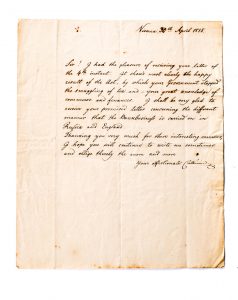 Vienna 30th April 1818.
Sir! I had the pleasure of receiving your letter of
the 4th instant. It shows most clearly the happy
result of the Act, by which your Government stopped
the smuggling of tea and your great knowledge of
commerce and finances. I shall be very glad to
receive your promised letter concerning the different
manner that the is carried on in
Russia and England
Thanking you very much for these interesting
I hope you will continue to write me sometimes
and oblige thereby the more and more
Your Affectionate